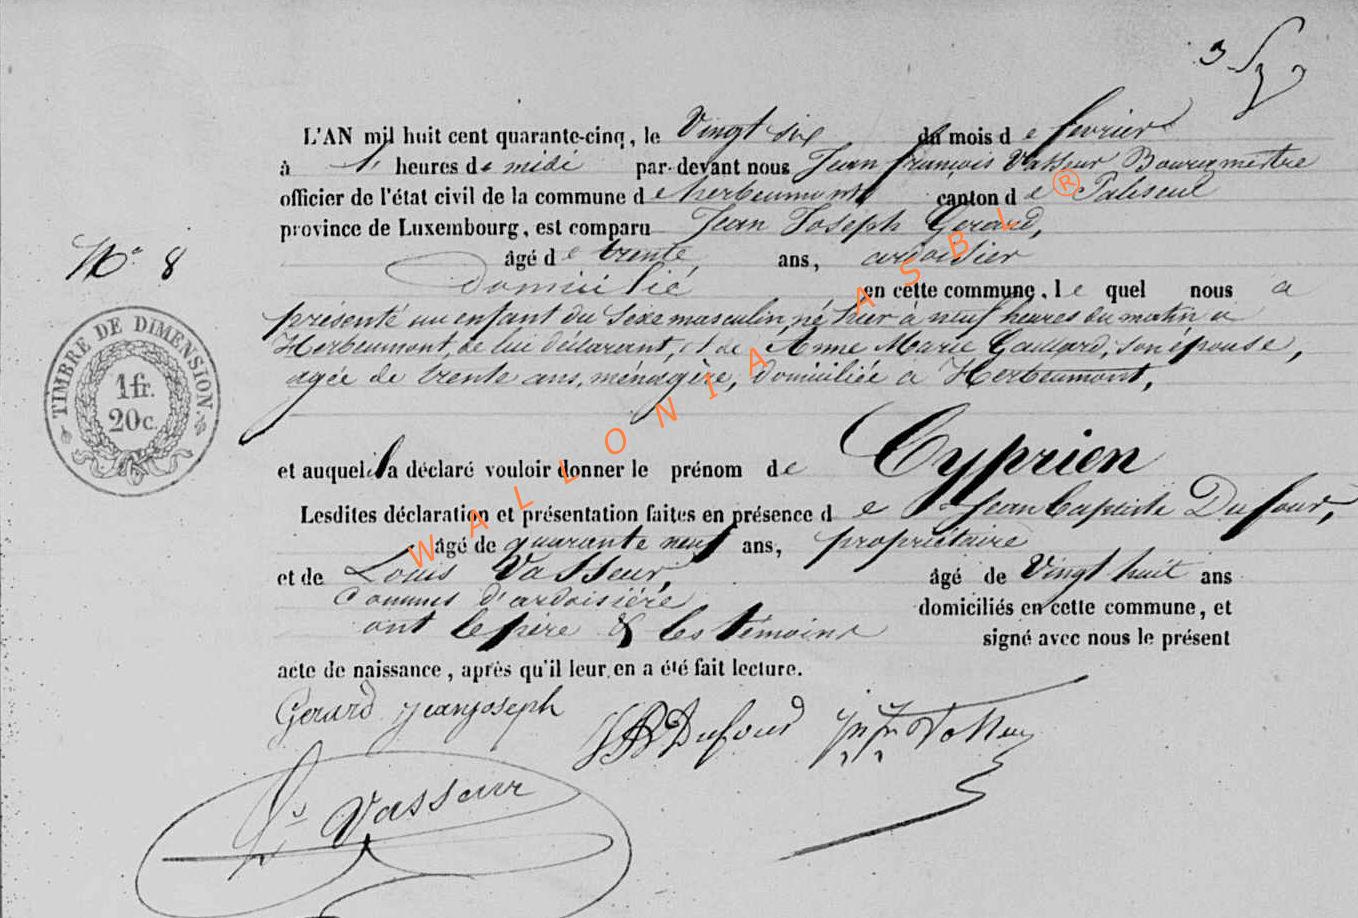 L'AN mil huit cent quarante-cinq, le Vingt six du mois de fevrier
à heures de midi par-devant nous Jean françois Vasseur Bourgmestre
officier de l'état civil de la commune de herbeumont canton de Paliseul
province de Luxembourg, est comparu Jean Joseph Gerard,
N° 8
âgé de trente ans, ardoisier
domicilié en cette commune, lequel nous a
présenté un enfant du sexe masculin, né hier à neuf heures du matin a
Herbeumont, de lui déclarant, et de Anne Marie Gaillard, son épouse,
agée de trente ans, ménagère, domiciliée a Herbeumont,
TIMBRE DE DIMENSION
1 fr.
20 c.
et auquel il a déclaré vouloir donner le prénom de Cyprien
Lesdites déclaration et présentation faites en présence de Jean Baptiste Dufour,
âgé de quarante neuf ans, propriétaire
et de Louis Vasseur, âgé de Vingt huit ans
Commis d'ardoisière domiciliés en cette commune, et
ont le père & les témoins signé avec nous le présent
acte de naissance, après qu'il leur en a été fait lecture.
Gerard jeanjoseph
JB Dufour
Vasseur
Ls Vasseur
WALLONIA ASBL ®